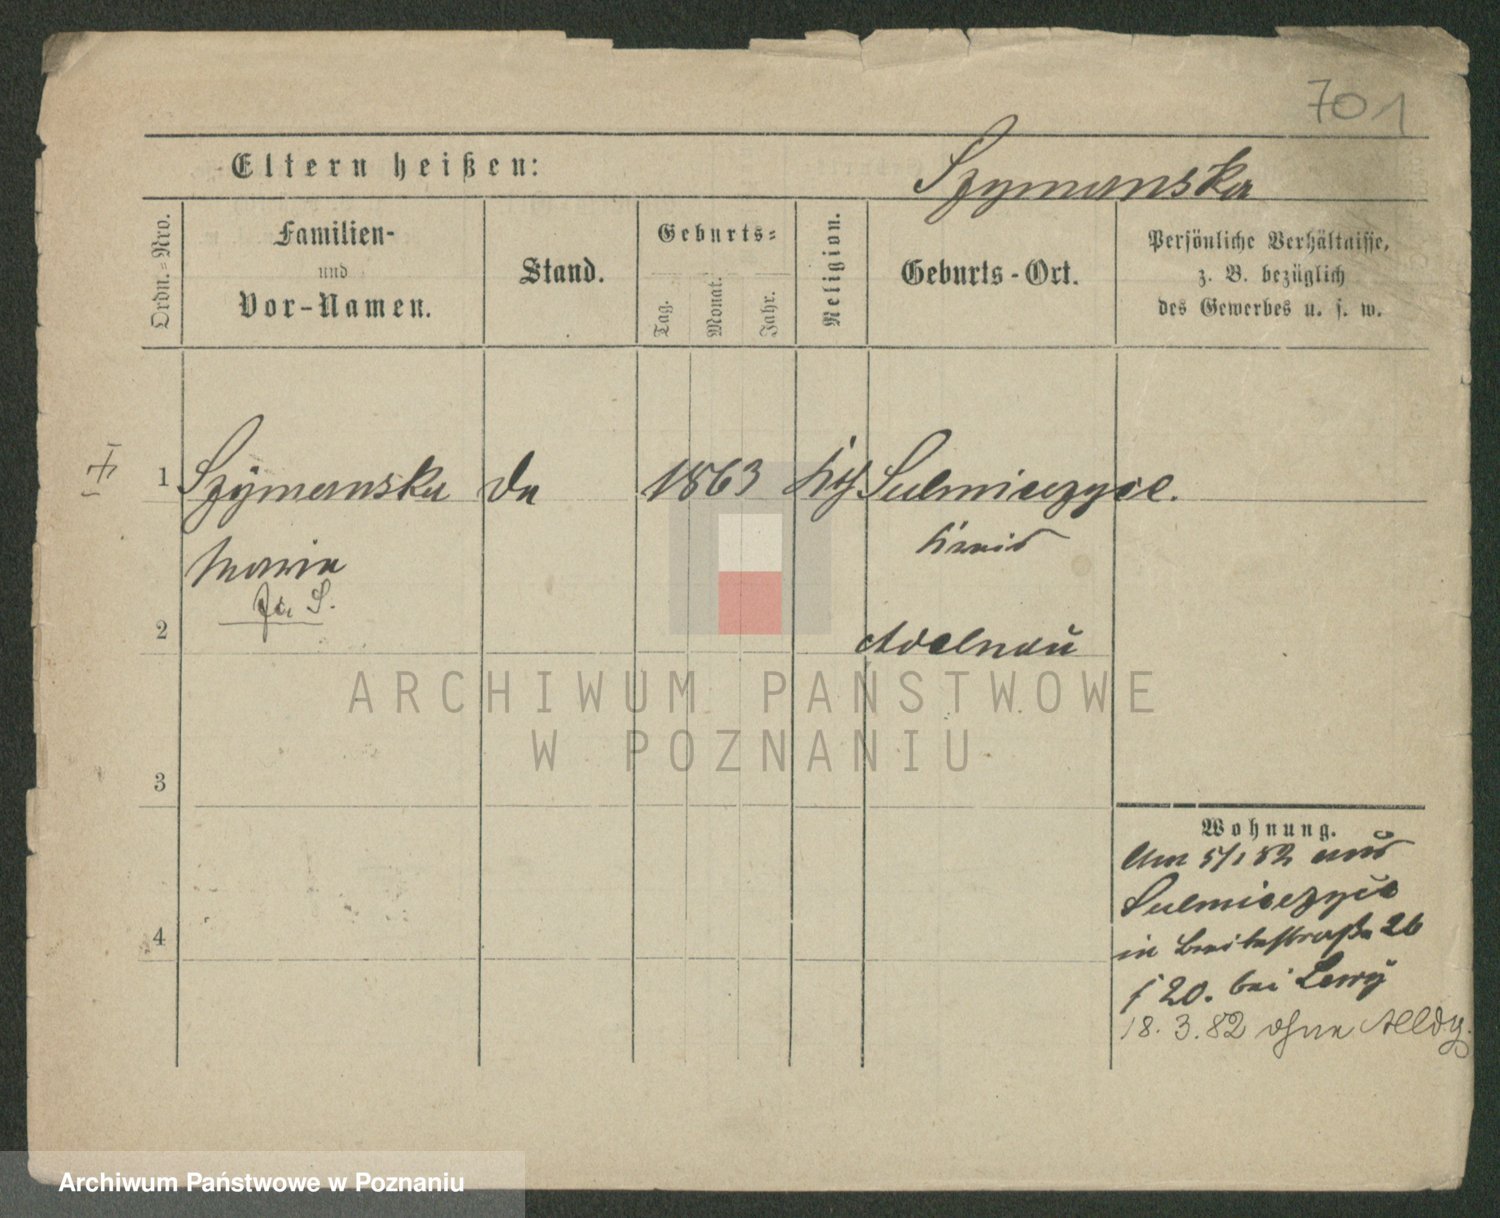 701
Eltern heißen:
Szymanska
Ordn.=Nro.
Familien-
und
Vor-Namen.
Stand.
Geburts=
Tag.
Monat.
Jahr.
Religion.
Geburts-Ort.
Persönliche Verhältnisse,
z. B. bezüglich
des Gewerbes u. s. w.
1
Szymanska
1863
Sulmierzyce.
Kreis
Marie
2
Adelnau
ARCHIWUM PAŃSTWOWE
W POZNANIU
3
Wohnung.
Am 5/1 82 aus
Sulmierzyce
in Breitestraße 26
bei Lewy
4
18. 3. 82 ohne Abldg.
Archiwum Państwowe w Poznaniu